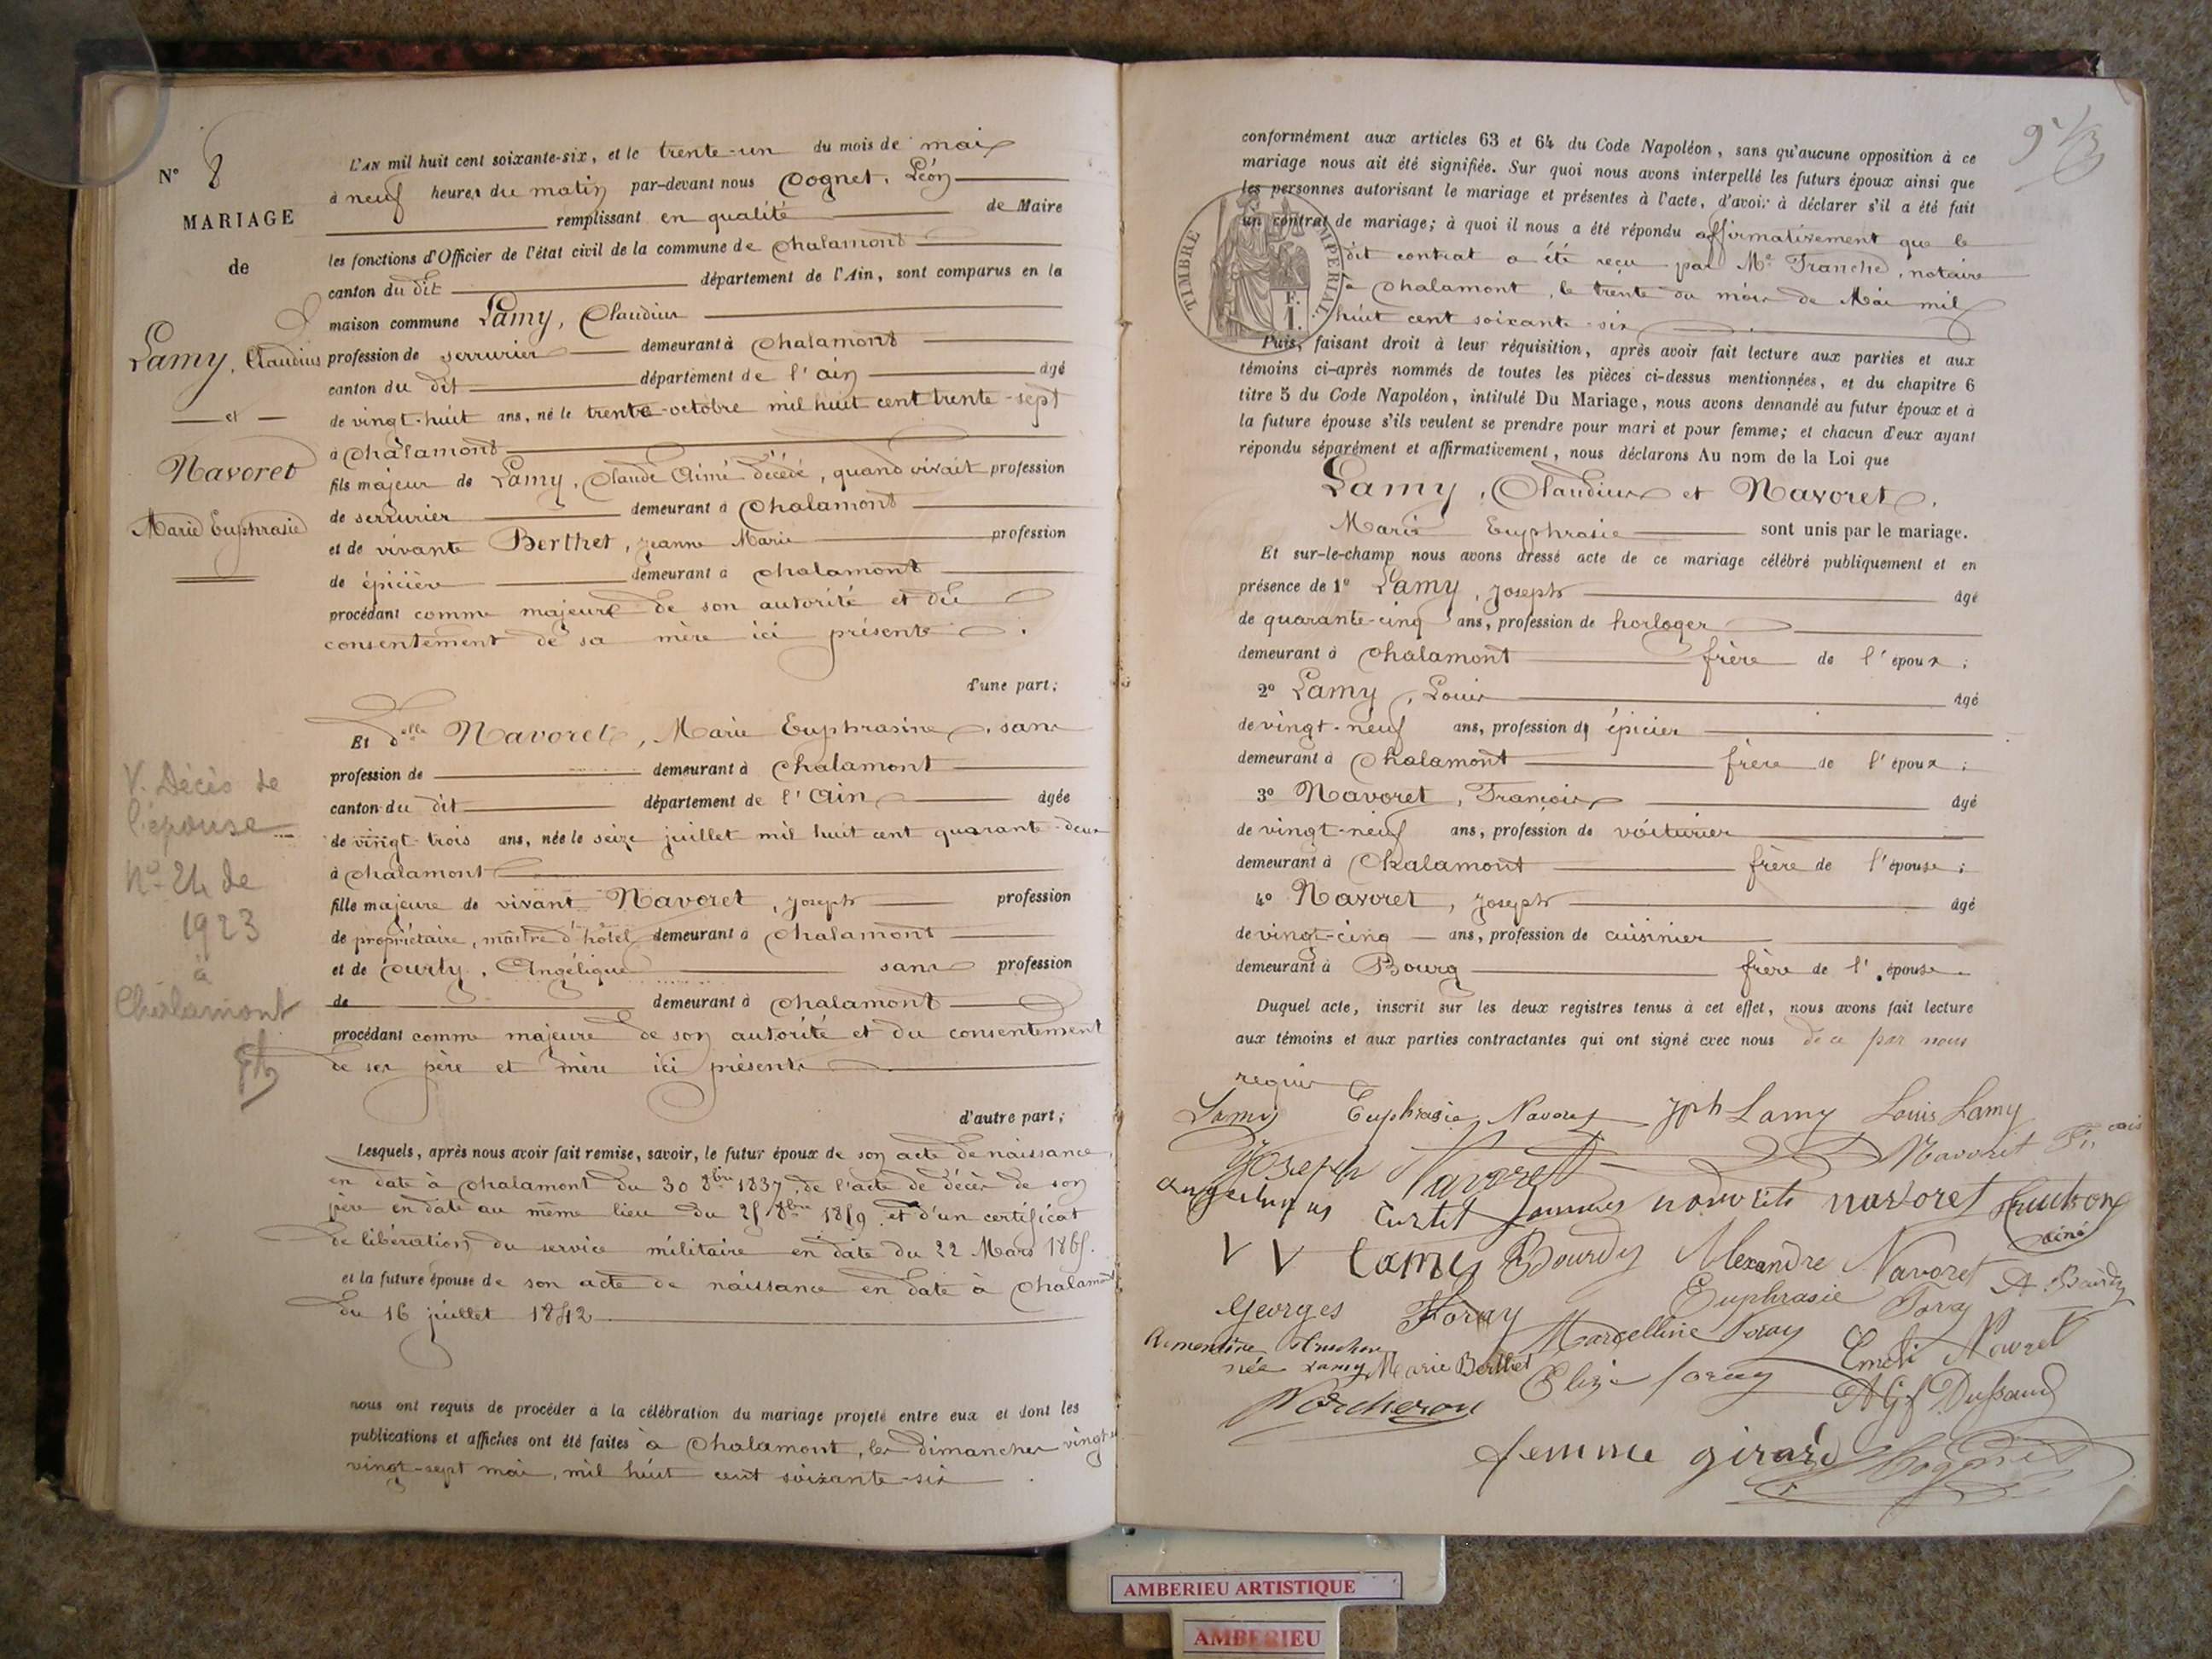 N° 8
MARIAGE
de
Lamy, Claudius
et
Navoret
Marie Euphrasie
V. Décès de
l'épouse
N° 24 de
1923
à
Chalamont
L'AN mil huit cent soixante-six, et le trente-un du mois de mai
à neuf heures du matin par-devant nous Cognet, Léon
remplissant en qualité de Maire
les fonctions d'Officier de l'état civil de la commune de Chalamont
canton du dit département de l'Ain, sont comparus en la
maison commune Lamy, Claudius
profession de serrurier demeurant à Chalamont
canton du dit département de l'ain âgé
de vingt-huit ans, né le trente octobre mil huit cent trente-sept
à Chalamont
fils majeur de Lamy, Claude Aimé décédé, quand vivait profession
de serrurier demeurant à Chalamont
et de vivante Berthet, Jeanne Marie profession
de épicière demeurant à Chalamont
procédant comme majeure de son autorité et du
consentement de sa mère ici présente.
d'une part;
Et dlle Navoret, Marie Euphrasine, sans
profession de demeurant à Chalamont
canton du dit département de l'Ain âgée
de vingt-trois ans, née le seize juillet mil huit cent quarante-deux
à Chalamont
fille majeure de vivant Navoret, Joseph profession
de propriétaire, maître d'hôtel, demeurant à Chalamont
et de Curty, Angélique sans profession
de demeurant à Chalamont
procédant comme majeure de son autorité et du consentement
de ses père et mère ici présents
d'autre part;
Lesquels, après nous avoir fait remise, savoir, le futur époux de son acte de naissance,
en date à Chalamont du 30 8bre 1837, de l'acte de décès de son
père en date au même lieu du 25 8bre 1859, et d'un certificat
de libération du service militaire en date du 22 Mars 1865.
et la future épouse de son acte de naissance en date à Chalamont
du 16 juillet 1842
nous ont requis de procéder à la célébration du mariage projeté entre eux et dont les
publications et affiches ont été faites à Chalamont, les dimanches vingt et
vingt-sept mai, mil huit cent soixante-six
conformément aux articles 63 et 64 du Code Napoléon, sans qu'aucune opposition à ce
mariage nous ait été signifiée. Sur quoi nous avons interpellé les futurs époux ainsi que
les personnes autorisant le mariage et présentes à l'acte, d'avoir à déclarer s'il a été fait
un contrat de mariage; à quoi il nous a été répondu affirmativement que le
dit contrat a été reçu par Me Tranché, notaire
à Chalamont, le trente du mois de Mai mil
huit cent soixante-six
TIMBRE IMPERIAL
1 F.
Puis, faisant droit à leur réquisition, après avoir fait lecture aux parties et aux
témoins ci-après nommés de toutes les pièces ci-dessus mentionnées, et du chapitre 6
titre 5 du Code Napoléon, intitulé Du Mariage, nous avons demandé au futur époux et à
la future épouse s'ils veulent se prendre pour mari et pour femme; et chacun d'eux ayant
répondu séparément et affirmativement, nous déclarons Au nom de la Loi que
Lamy, Claudius et Navoret,
Marie Euphrasie sont unis par le mariage.
Et sur-le-champ nous avons dressé acte de ce mariage célébré publiquement et en
présence de 1° Lamy, Joseph âgé
de quarante-cinq ans, profession de horloger
demeurant à Chalamont frère de l'époux;
2° Lamy, Louis âgé
de vingt-neuf ans, profession de épicier
demeurant à Chalamont frère de l'époux;
3° Navoret, François âgé
de vingt-neuf ans, profession de voiturier
demeurant à Chalamont frère de l'épouse;
4° Navoret, Joseph âgé
de vingt-cinq ans, profession de cuisinier
demeurant à Bourg frère de l'épouse
Duquel acte, inscrit sur les deux registres tenus à cet effet, nous avons fait lecture
aux témoins et aux parties contractantes qui ont signé avec nous de ce par nous
requis
Lamy Euphrasie Navoret Jph Lamy Louis Lamy
Joseph Navoret Navoret
Navoret
V V Lamy Bourdy Alexandre Navoret
Georges Foray Euphrasie Foray
Marcelline Foray
née Lamy Marie Berthet Eliza Foray
Porcheron
femme girard Cognet
AMBERIEU ARTISTIQUE
AMBERIEU